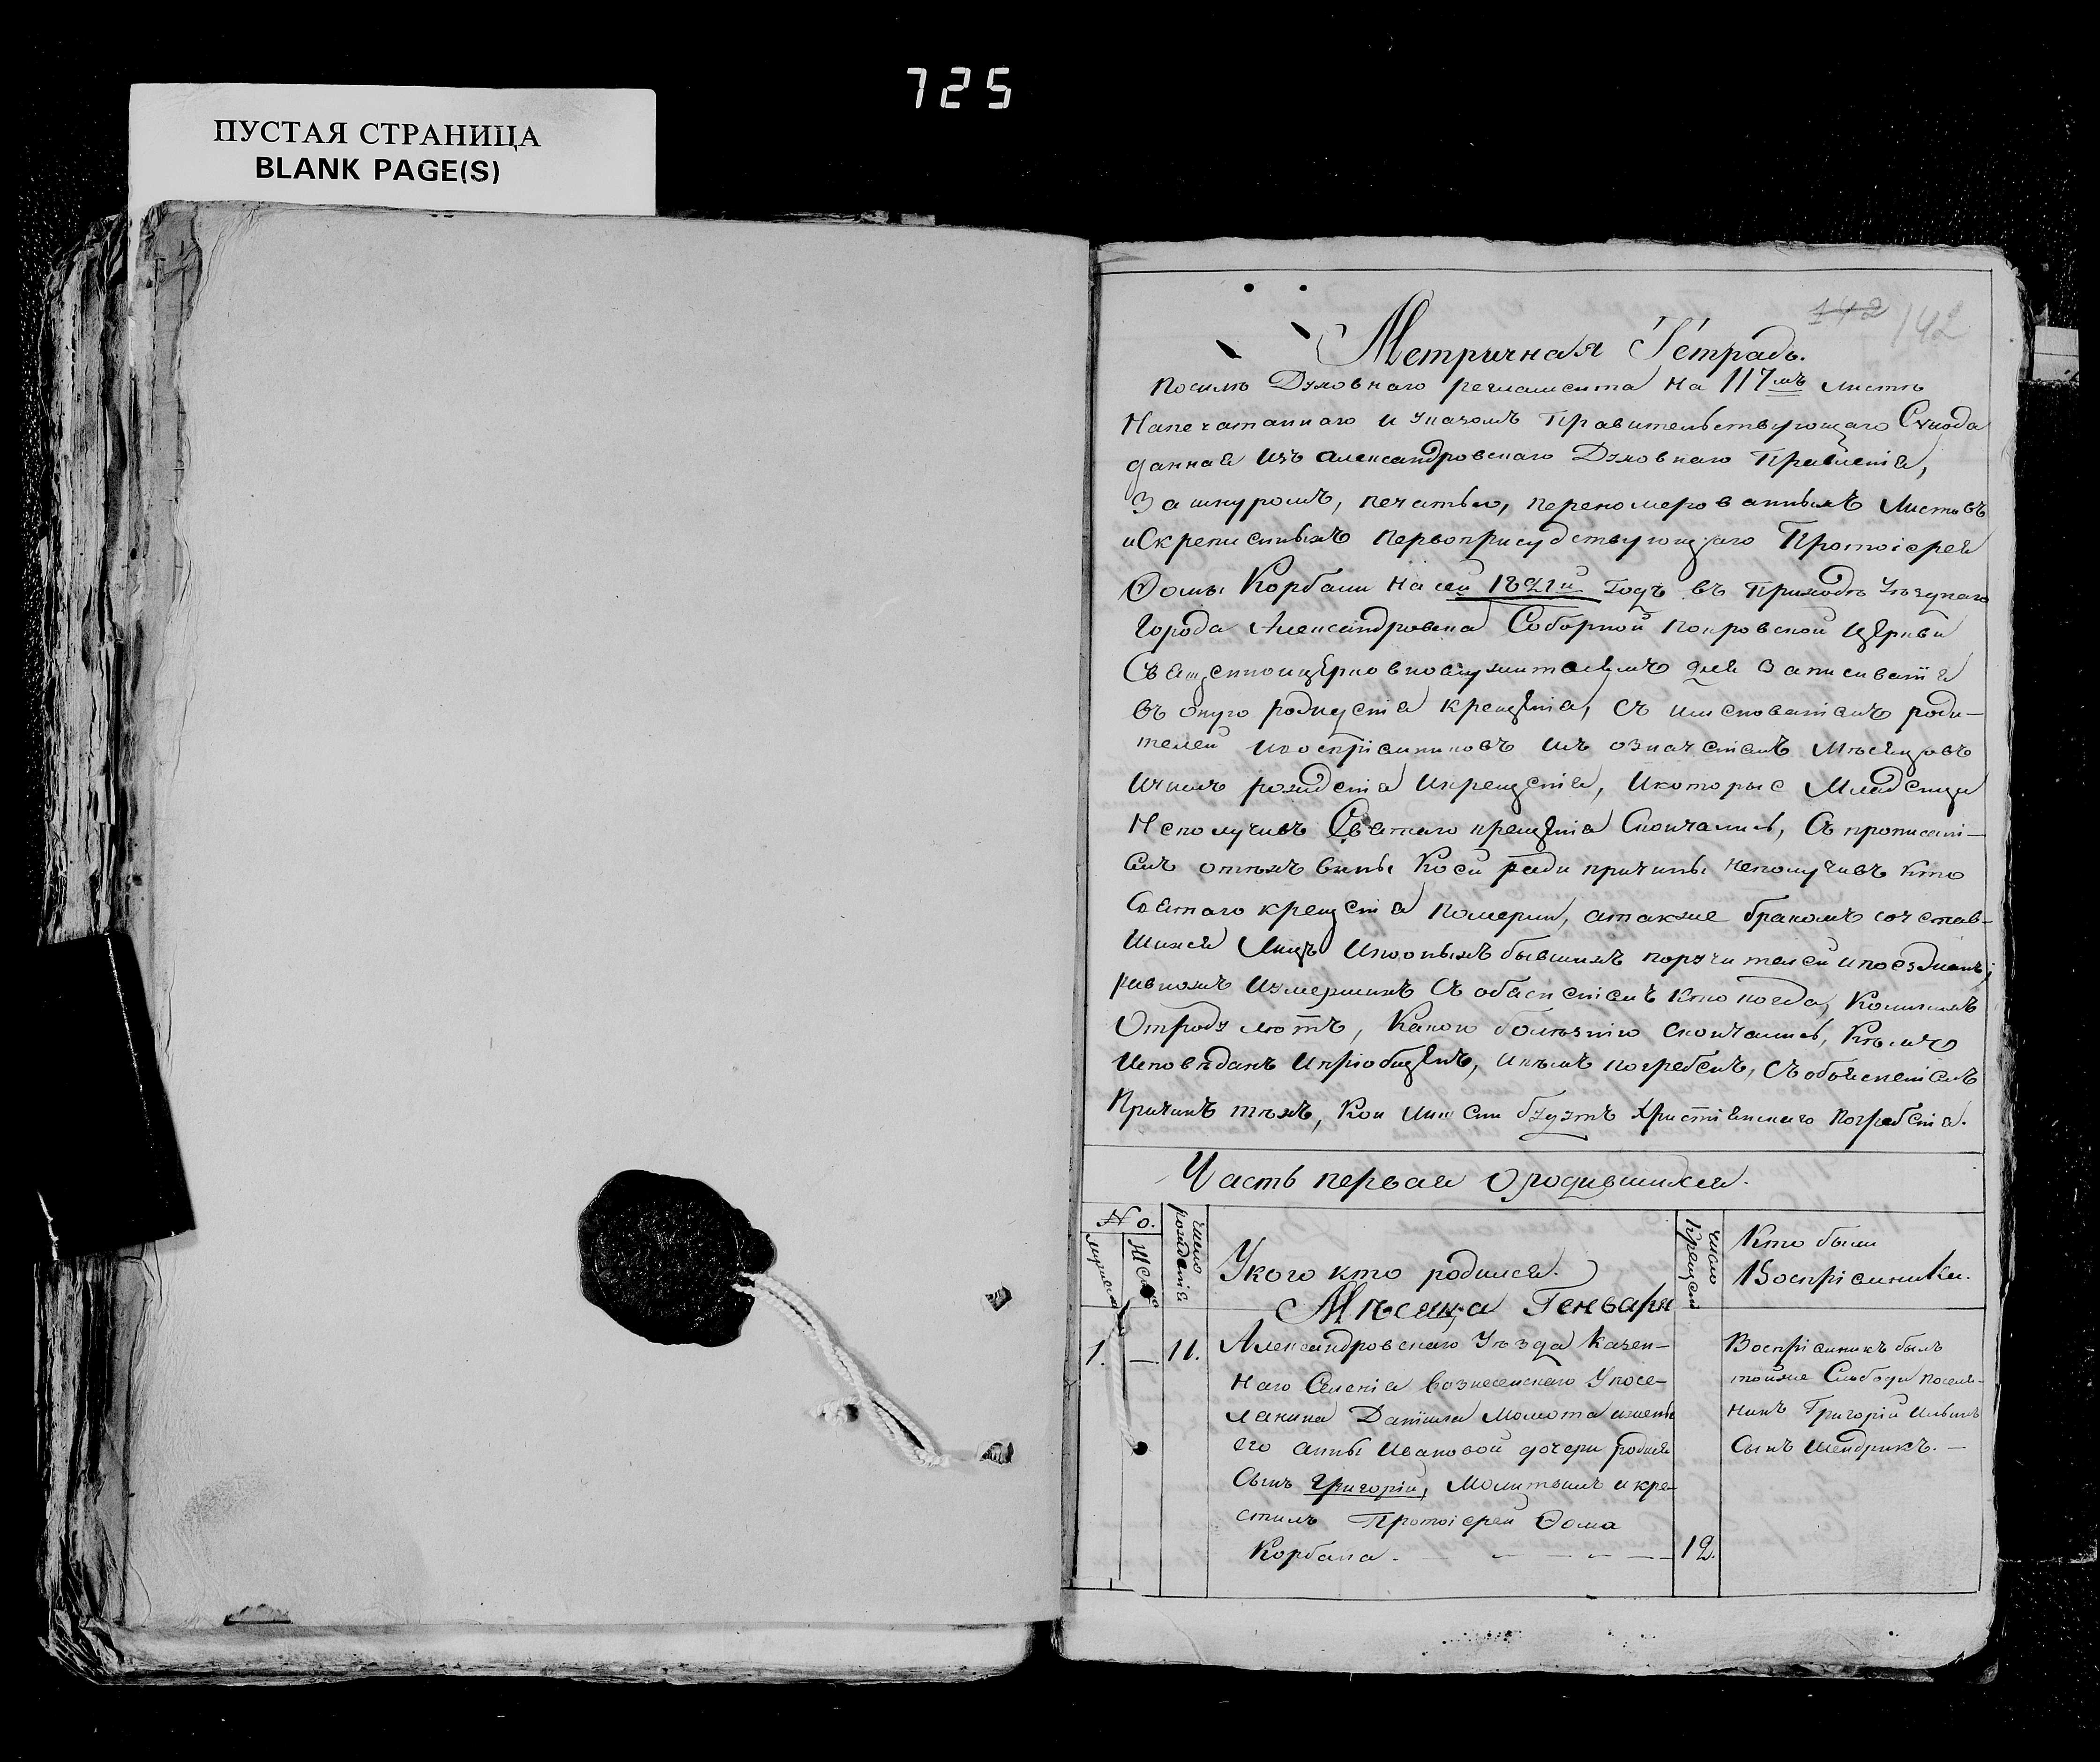 725
ПУСТАЯ СТРАНИЦА
BLANK PAGE(S)
142 142
Метричная Тетрадь.
Посилѣ Духовнаго регламента на 117мъ листѣ
Напечатаннаго и указомъ Правительствующаго Сѵнода
данная изъ Александровскаго Духовнаго Правленія,
За шнуромъ, печатью, переномерованныхъ Листовъ
и Скрепленныхъ Первоприсудствующаго Протоіерея
Ѳомы Корбани на сей 1821й годъ въ Приходъ Уѣзднаго
Города Александровска Соборной Покровской Церкви
Священноцерковнослужителямъ для Записиванія
въ оную родищенія крещенія, съ имснованіемъ роди-
телей и воспріемниковъ ихъ означеніемъ Мѣсяцовъ
Ичислъ рожденія Икрещенія, Икоторые Младенцы
Неполучивъ Святаго крещенія Скончались, Съ прописані-
емъ отѣхъ вины Коей ради причины неполучивъ кто
Святаго крещенія Померли, атакже бракомъ сочетав-
шихся Лицъ Ипооныхъ бывшихъ поручителей ипоезжанъ;
равнохъ Изумершихъ Съ обяснениемъ Кто когда, Коликихъ
Отроду лѣтъ, Какою болѣзнію скончались, Кѣмъ
Исповѣданъ Ипріобщенъ, Икѣмъ погребенъ, Съ объясненіемъ
Причинъ тѣхъ, Кои Лишени будутъ Христіянскаго Погребенія.
Часть первая О родившихся.
No.
мужеска
Женска
число рожденія
У кого кто родился.
число крещенія
Кто были
Воспріемники.
Мѣсяца Генваря
1. — 11. Александровскаго Уѣзда казен-
наго Селенія Вознесенскаго У посе-
лянина Даніила Момота ижены
его анны Ивановой дочери родился
Сынъ Григорій, Молитвилъ и кре-
стилъ Протоіерей Ѳома
Корбана. — — — — 12.
Воспріемникъ былъ
тойже Слободы поселя-
нинъ Григорій Ильинъ
Сынъ Шендрикъ. —